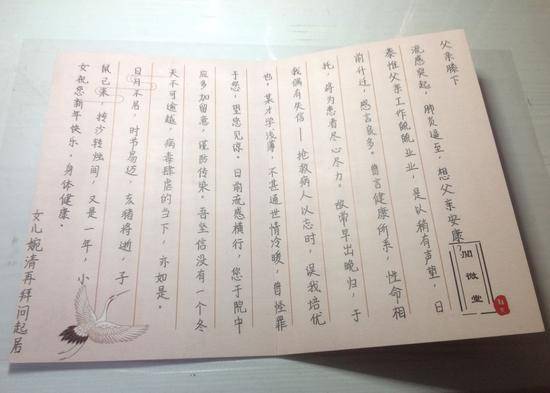 父亲膝下
流感突起，肺炎逼至，想父亲安康？
泰惟父亲工作兢兢业业，是以稍有声望，日
前升迁，感言良多。曾言健康所系，性命相
托，将为患者尽心尽力。故常早出晚归，于
我偶有失信——抢救病人以忘时，误我培优
也，某才学浅薄，不甚通世情冷暖，曾怪罪
于您，望您见谅。日前流感横行，您于院中
应多加留意，谨防传染。吾坚信没有一个冬
天不可逾越，病毒肆虐的当下，亦如是。
日月不居，时节易迈，亥猪将逝，子
鼠已来，转沙转烛间，又是一年，小
女祝您新年快乐，身体健康。
女儿 婉清再拜问起居
加微堂